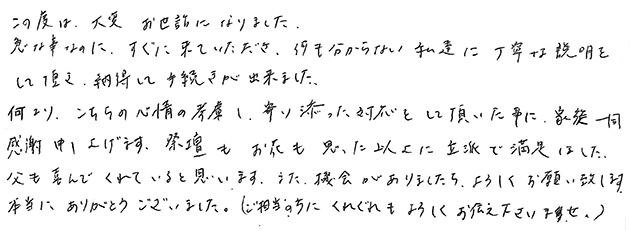 この度は、大変 お世話に なりました。
急な事なのに、すぐに来ていただき、何も分からない私達に丁寧な説明を
して頂き、納得して手続きが出来ました。
何より、こちらの心情の考慮し、寄り添った対応をして頂いた事に、家族一同
感謝申し上げます。祭壇もお花も思った以上に立派で満足しました。
父も喜んでくれていると思います。また、機会がありましたら、よろしくお願い致します。
本当にありがとうございました。(ご担当のちに くれぐれもよろしくお伝え下さいませ。)